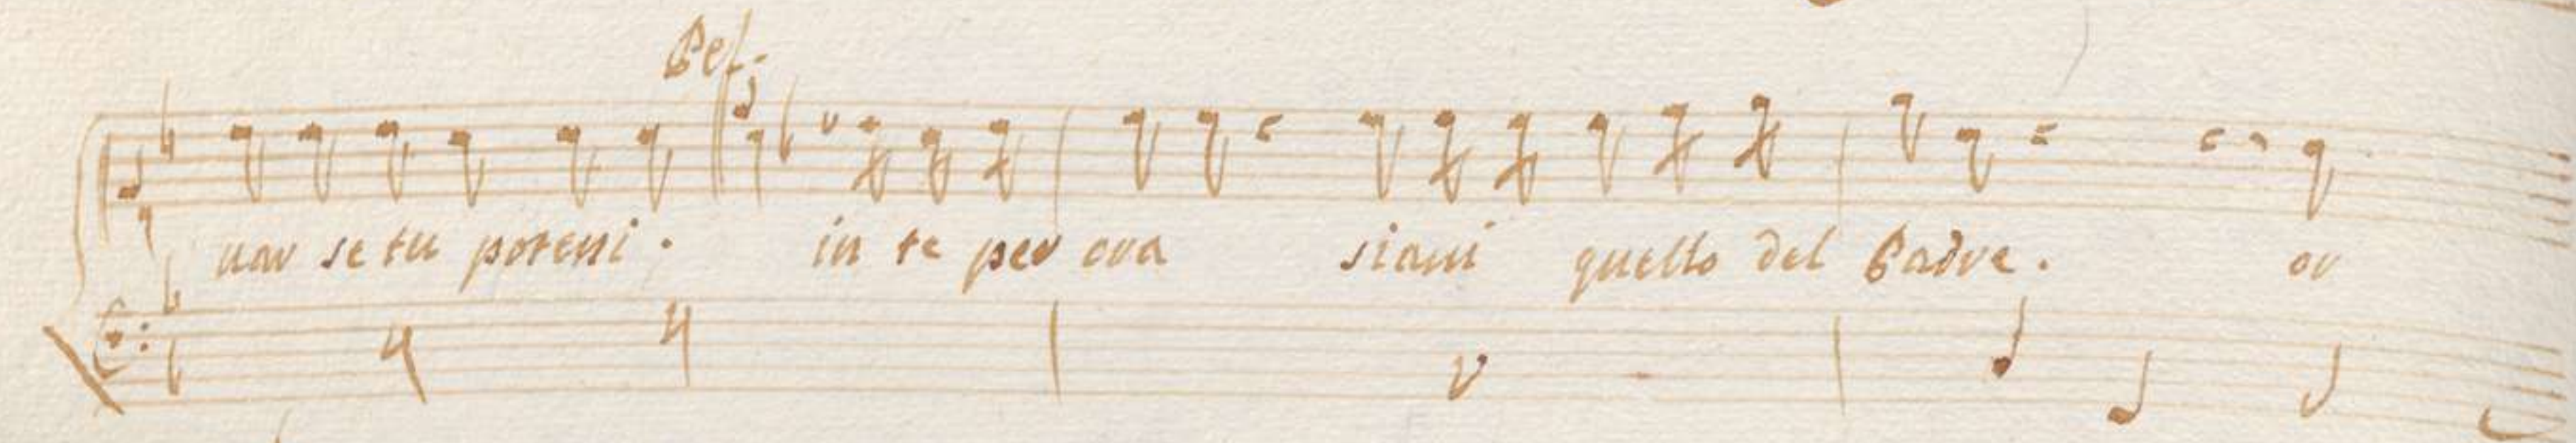 Bel.
nar se tu potessi. in te per ora siami quello del Padre. or